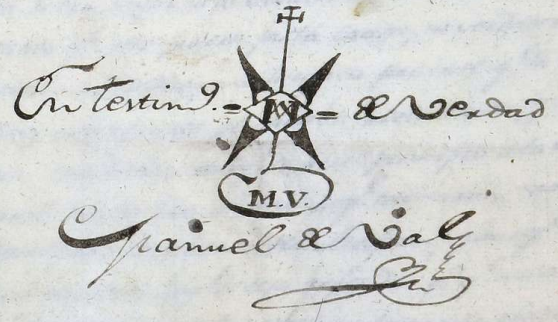 En testim.º = M = de Verdad
M.V.
Manuel de Val